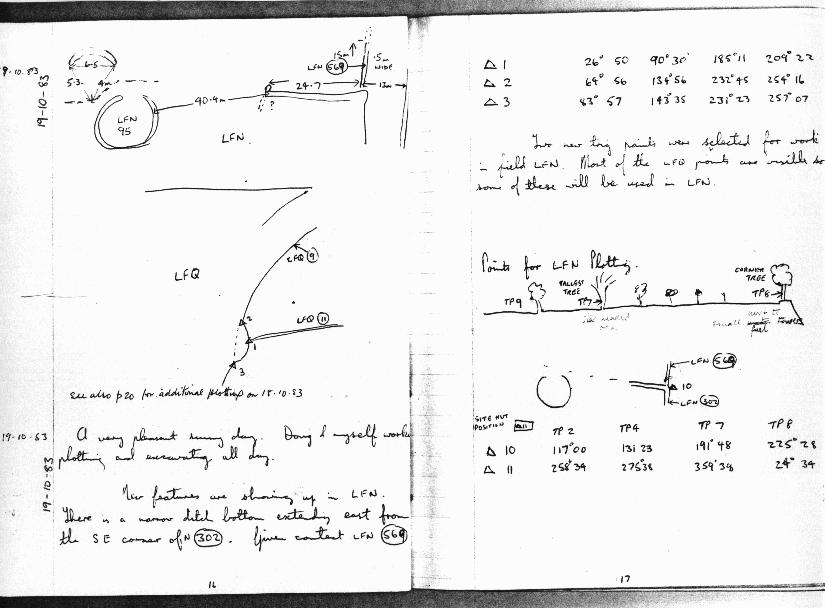 19-10-83
19-10-83
6.5
5.3
4m
LFN
95
40.4m
?
24.7
15m
LFN 569
.5m
WIDE
12m
LFN
LFQ
LFQ 9
LFQ 11
2
1
3
see also p20 for additional plotting on 18-10-83
19-10-83
19-10-83
A very pleasant sunny day. Doug & myself work
plotting and excavating all day.
New features are showing up in LFN.
There is a narrow ditch bottom extending east from
the SE corner of N 302. Given context LFN 569
16
△ 1 26° 50 90° 30' 185° 11 209° 22
△ 2 64° 56 134° 56 232° 45 254° 16
△ 3 83° 57 143° 35 231° 23 257° 07
Two new trig points were selected for work
in field LFN. Most of the LFQ points are visible so
some of these will be used in LFN.
Points for LFN Plotting.
TP9
TALLEST
TREE
TP7
CORNER
TREE
TP8
small
next to
LFN 569
△ 10
LFN 302
SITE HUT
POSITION 11
TP 2 TP4 TP 7 TP 8
△ 10 117° 00 131 23 191° 48 225° 28
△ 11 258° 34 275° 38 359° 38 24° 34
17